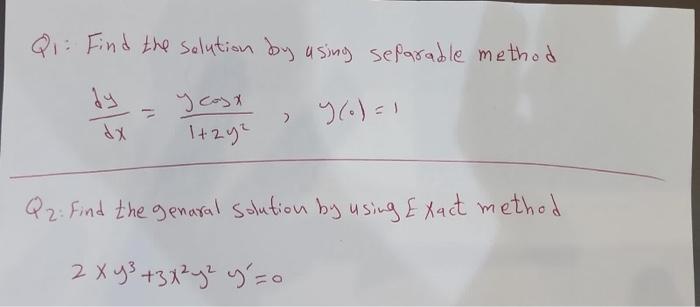 Q1: Find the solution by using separable method
dy/dx = y cosx / 1+2y² , y(0)=1
Q2: Find the genaral solution by using Exact method
2xy³+3x²y² y′=0